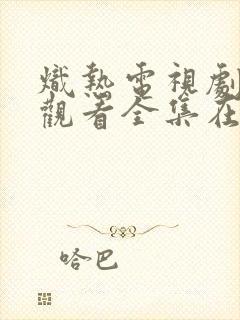 熾熱電視劇
觀看全集在
哈巴